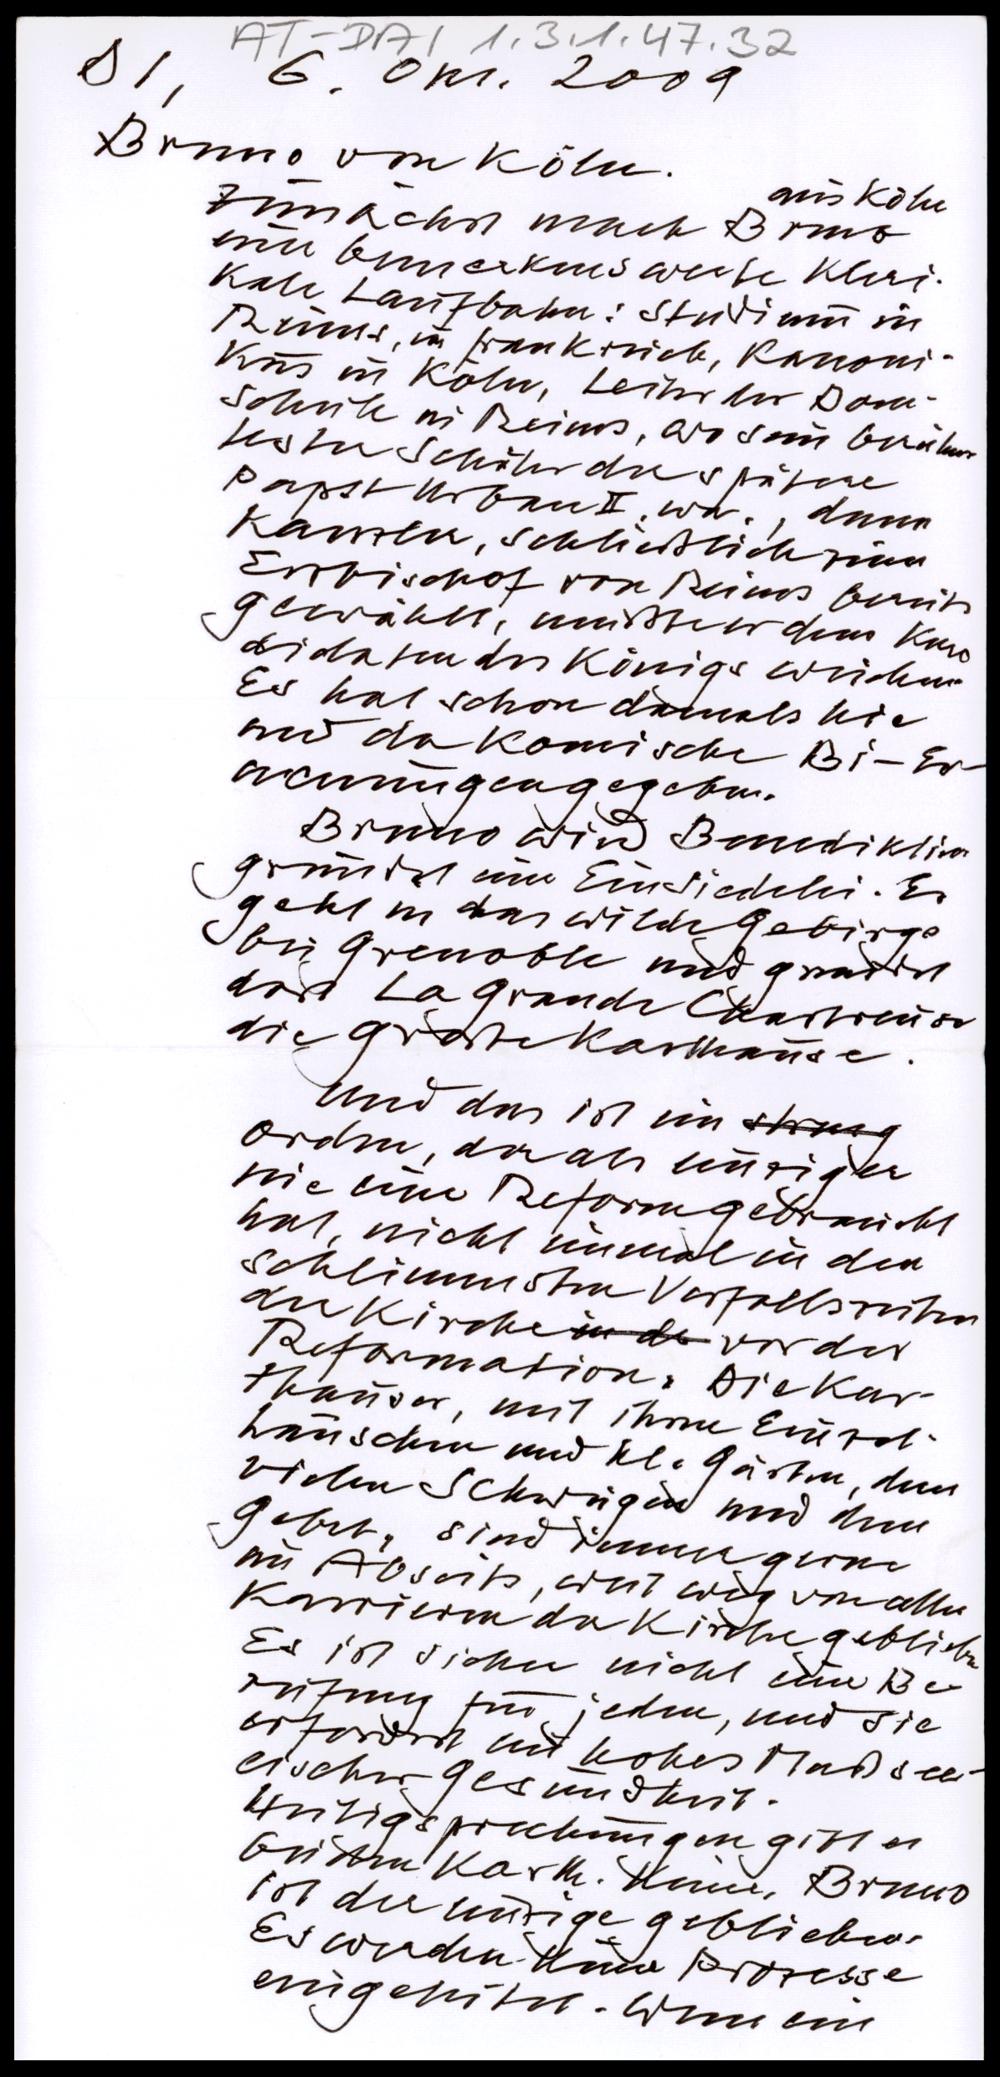 AT-DAI 1.3.1.47.32
DI, 6. Okt. 2009
Bruno von Köln.
aus Köln
Zunächst macht Bruno
eine bemerkenswerte kleri-
kale Laufbahn: Studium in
Reims, in Frankreich, Kanoni-
kus in Köln, Leiter der Dom-
schule in Reims, wo sein berühm
tester Schüler der spätere
Papst Urban II. war, dann
Kanzler, schließlich zum
Erzbischof von Reims bereits
gewählt, mußte er dem Kan
didaten des Königs weichen.
Es hat schon damals hie
und da komische Bi-Er-
nennungen gegeben.
Bruno wird Benediktiner
gründet eine Einsiedelei. Er
geht in das wilde Gebirge
bei Grenoble und gründet
dort La Grande Chartreuse
die Große Karthause.
Und das ist ein streng
Orden, der als einziger
nie eine Reform gebraucht
hat, nicht einmal in den
schlimmsten Verfallszeiten
der Kirche in de vor der
Reformation. Die Kar-
thäuser, mit ihren Einzel-
häuschen und kl. Gärten, dem
vielen Schweigen und dem
Gebet, sind immer gerne
im Abseits, weit weg von allen
Karrieren der Kirche geblieben
Es ist sicher nicht eine Be-
rufung für jeden, und sie
erfordert ein hohes Maß see-
lischer Gesundheit.
Heiligsprechungen gibt es
bei den Karth. keine. Bruno
ist der einzige geblieben.
Es werden keine Prozesse
eingeleitet. Wenn ein